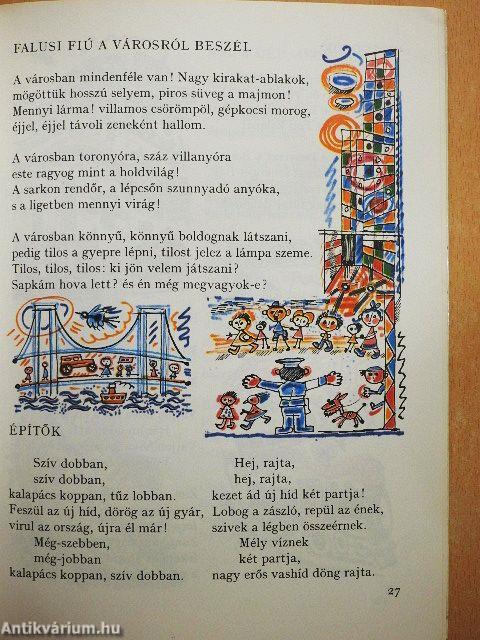 FALUSI FIÚ A VÁROSRÓL BESZÉL
A városban mindenféle van! Nagy kirakat-ablakok,
mögöttük hosszú selyem, piros süveg a majmon!
Mennyi lárma! villamos csörömpöl, gépkocsi morog,
éjjel, éjjel távoli zeneként hallom.
A városban toronyóra, száz villanyóra
este ragyog mint a holdvilág!
A sarkon rendőr, a lépcsőn szunnyadó anyóka,
s a ligetben mennyi virág!
A városban könnyű, könnyű boldognak látszani,
pedig tilos a gyepre lépni, tilost jelez a lámpa szeme.
Tilos, tilos, tilos: ki jön velem játszani?
Sapkám hova lett? és én még megvagyok-e?
ÉPÍTŐK
Szív dobban,
szív dobban,
kalapács koppan, tűz lobban.
Feszül az új híd, dörög az új gyár,
virul az ország, újra él már!
Még-szebben,
még-jobban
kalapács koppan, szív dobban.
Hej, rajta,
hej, rajta,
kezet ád új híd két partja!
Lobog a zászló, repül az ének,
szivek a légben összeérnek.
Mély víznek
két partja,
nagy erős vashíd döng rajta.
27
Antikvárium.hu